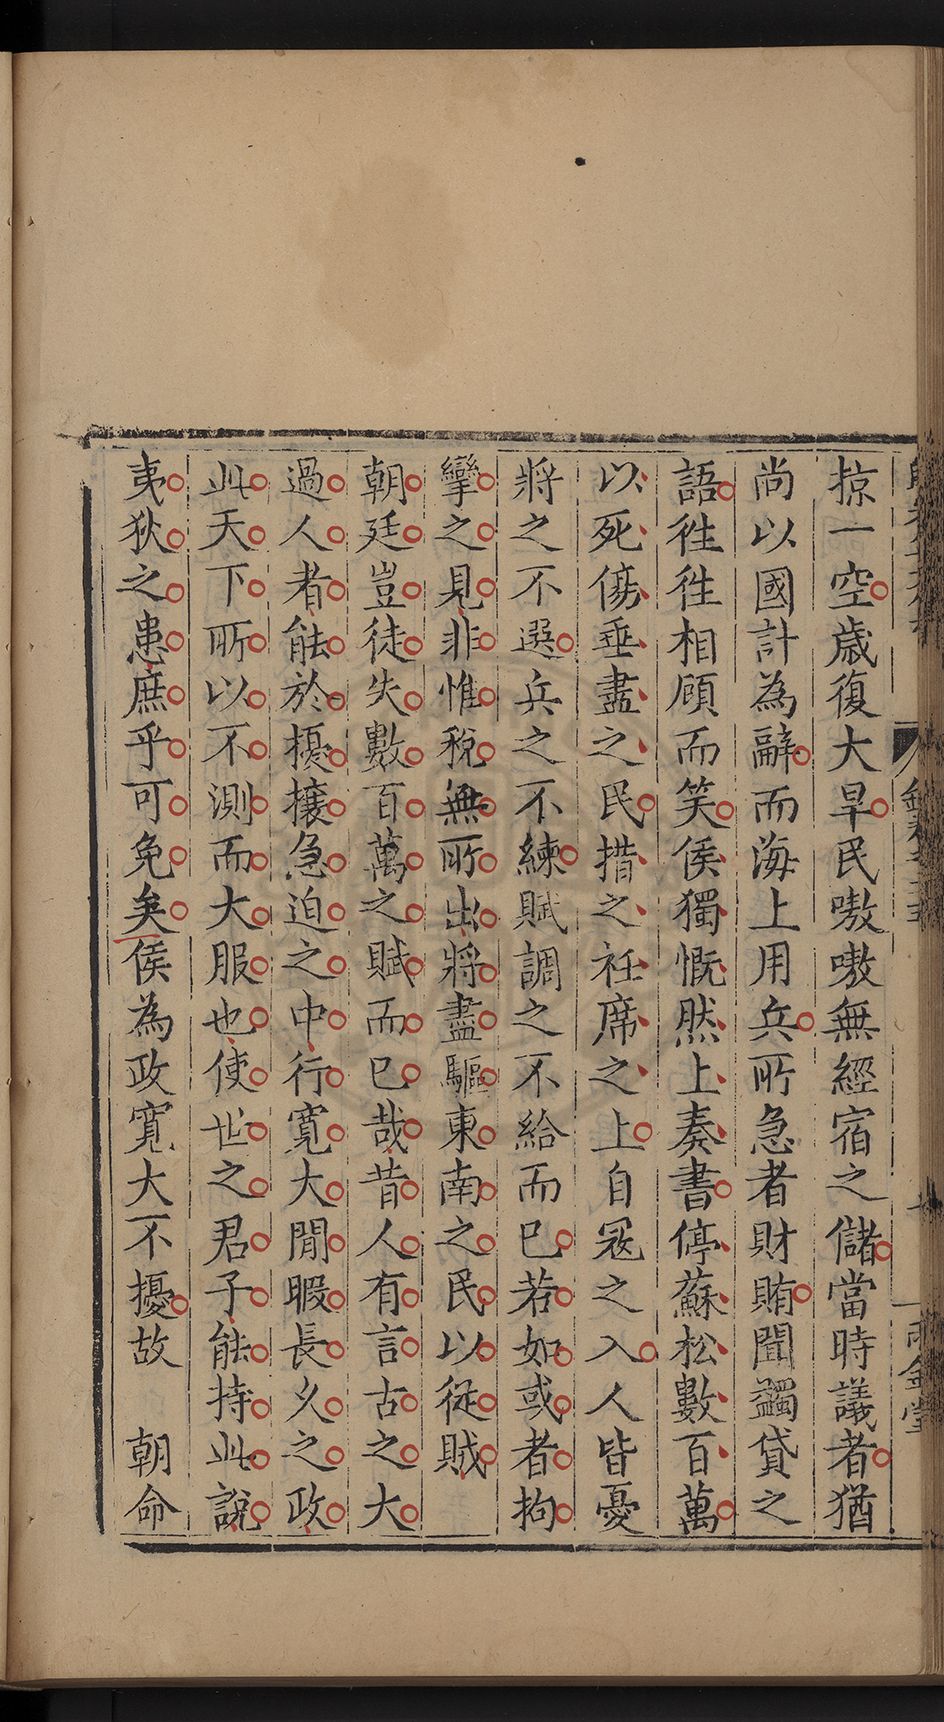 掠一空歲復大旱民嗷嗷無經宿之儲當時議者猶
尚以國計為辭而海上用兵所急者財賄聞蠲貸之
語徃徃相顧而笑侯獨慨然上奏書停蘇松數百萬
以死傷垂盡之民措之衽席之上自冦之入人皆憂
將之不選兵之不練賦調之不給而已若如或者拘
攣之見非惟稅無所出將盡驅東南之民以從賊
朝廷豈徒失數百萬之賦而已哉昔人有言古之大
過人者能於擾攘急迫之中行寛大閒暇長久之政
此天下所以不測而大服也使世之君子能持此說
夷狄之患庶乎可免矣侯為政寛大不擾故　朝命